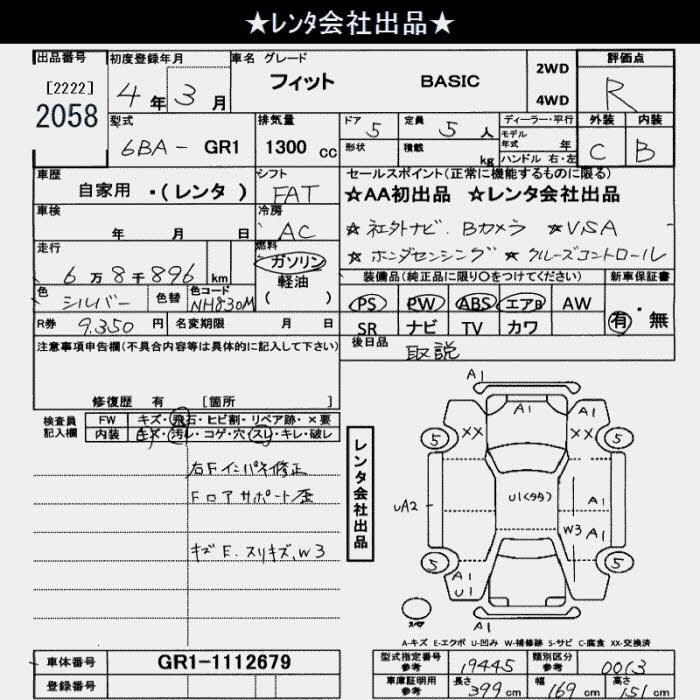 ★レンタ会社出品★
出品番号
[2222]
2058
初度登録年月
4 年 3 月
車名 グレード
フィット BASIC
2WD
4WD
評価点
R
型式
6BA- GR1
排気量
1300 cc
ドア 5
定員 5 人
形状
積載 kg
ディーラー・平行
モデル年式 年
ハンドル 右・左
外装 内装
C B
車歴
自家用 ・(レンタ)
シフト
FAT
セールスポイント(正常に機能するものに限る)
★AA初出品 ★レンタ会社出品
☆ 社外ナビ. Bカメラ ☆VSA
☆ ホンダセンシング ☆ クルーズコントロール
車検
年 月 日
冷房
AC
走行
6 万 8 千 896 km
燃料
ガソリン
軽油
( )
色 シルバー
色替
色コード
NH830M
装備品(純正品に限り○をつけてください)
新車保証書
PS PW ABS エアB AW
SR ナビ TV カワ
有・無
R券 9,350 円
名変期限 月 日
後日品
取説
注意事項申告欄(不具合内容等は具体的に記入して下さい)
修復歴 有 [箇所 ]
検査員
記入欄
FW キズ・飛石・ヒビ割・リペア跡・×要
内装 キズ・汚レ・コゲ・穴・スレ・キレ・破レ
右Fインパネ修正
Fロアサポート歪
キズE.スリキズ.W3
レンタ会社出品
A1
A1
A1
XX
XX
5
5
U1(タタ)
A1
UA2
W3
A1
5
5
A1
U1
A1
スペア
A-キズ E-エクボ U-凹み W-補修跡 S-サビ C-腐食 XX-交換済
車体番号
GR1-1112679
登録番号
型式指定番号
参考
19445
類別区分
参考
0013
車庫証明用
参考
長さ 399 cm
幅 169 cm
高さ 151 cm